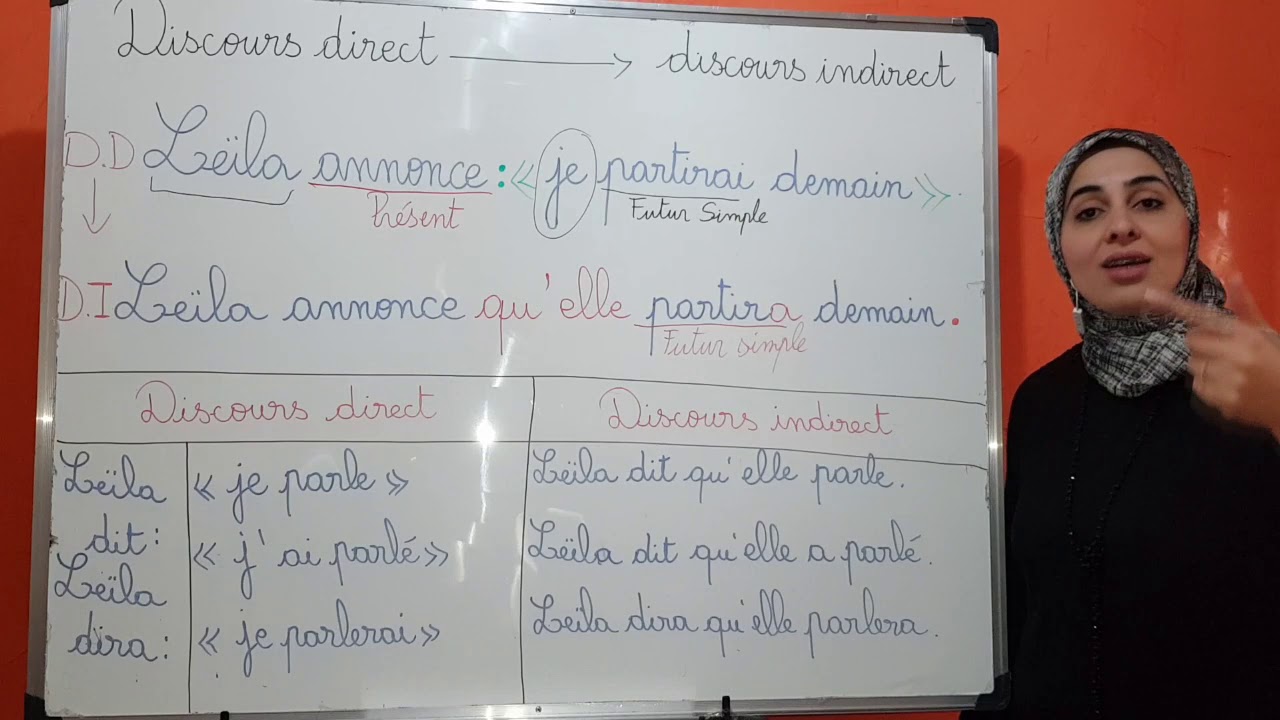 Discours direct → discours indirect
D.D Leïla annonce : « je partirai demain ».
Présent Futur Simple
D.I Leïla annonce qu'elle partira demain.
Futur simple
Discours direct Discours indirect
Leïla « je parle » Leïla dit qu'elle parle.
dit : « j'ai parlé » Leïla dit qu'elle a parlé.
Leïla
dira : « je parlerai » Leïla dira qu'elle parlera.